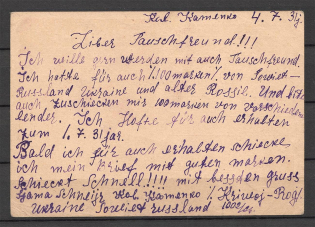 Kol. Kamenko 4. 7. 31j
Liber Tauschfreund!!!
Ich wille gern werden mit auch Tauschfreund.
Ich hofte für auch % 100 marken % von Sowiet-
Russland Ukraine und alter Rossii. Und bitte
auch zuschiecken mir 100 marken von verschieden
lender. Ich Hofte für auch erhalten
zum 1. 7. 31 jar.
Bald ich für auch erhalten schiecke
ich mein brief mit guten marken.
Schieckt Schnell!!!! mit besden gruss
Kol. Kamenko % Kriwoj-Rog
Ukraine Sowiet russland